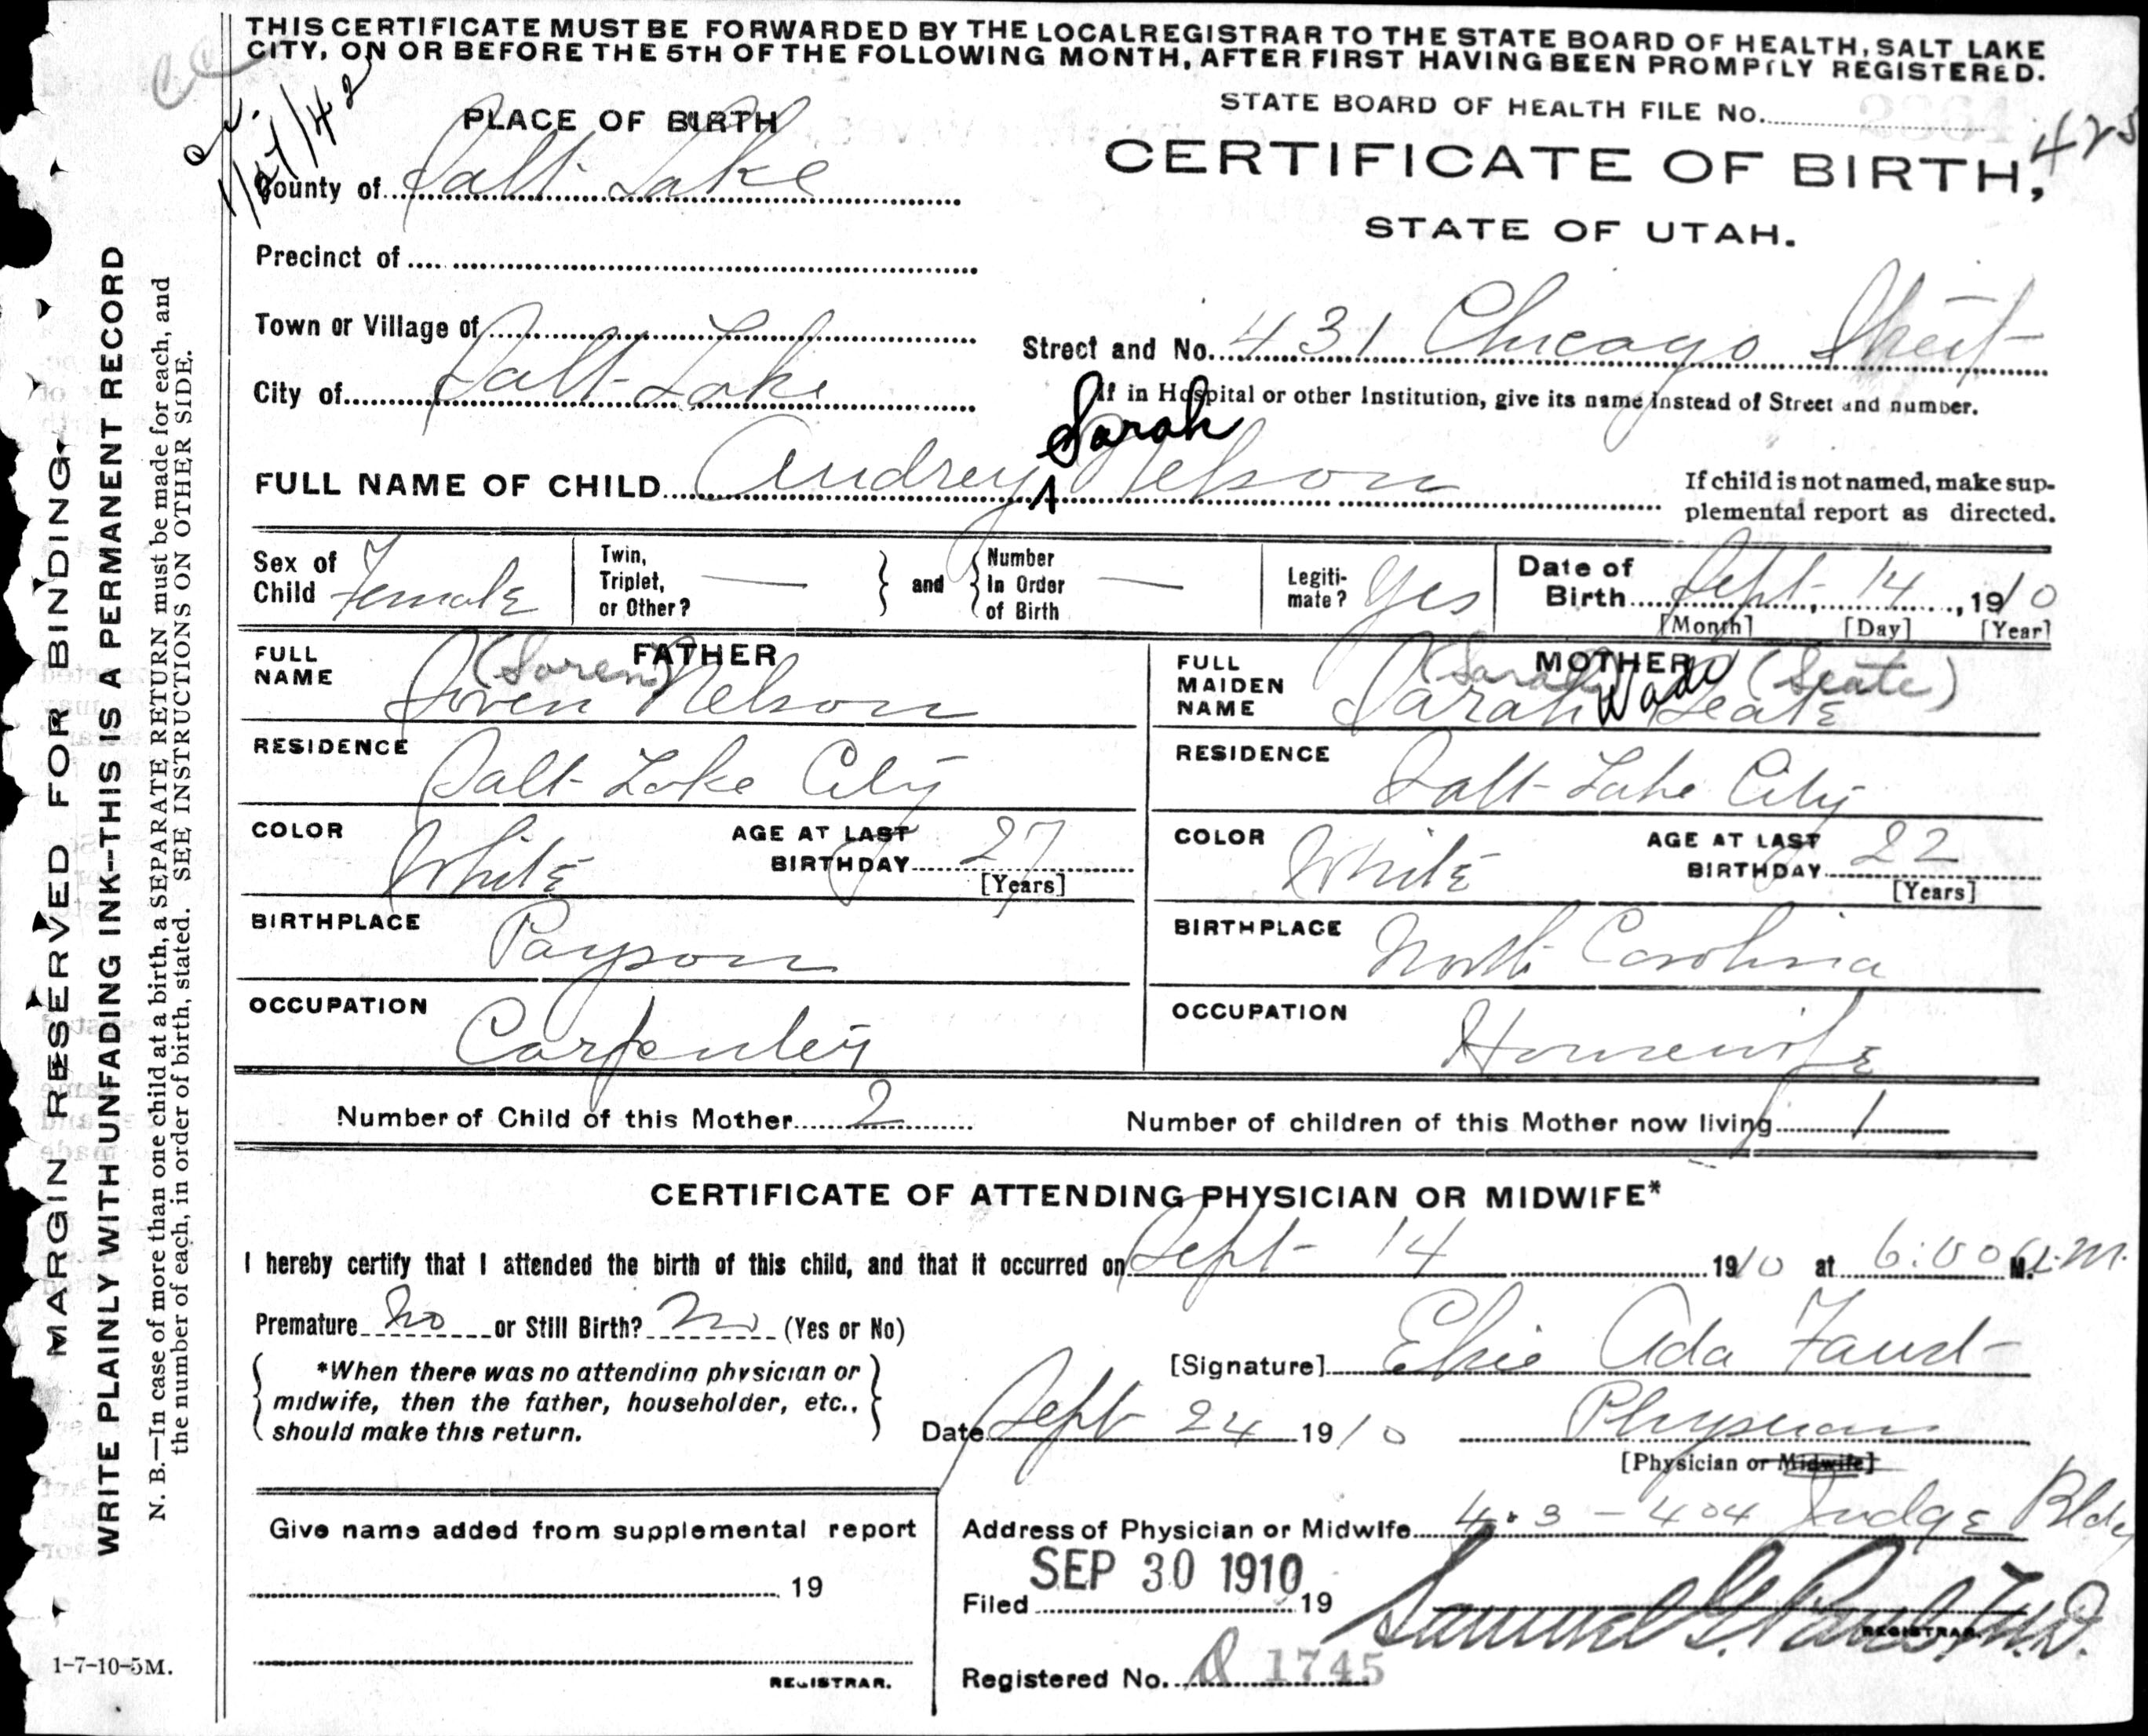 THIS CERTIFICATE MUST BE FORWARDED BY THE LOCAL REGISTRAR TO THE STATE BOARD OF HEALTH, SALT LAKE
CITY, ON OR BEFORE THE 5TH OF THE FOLLOWING MONTH, AFTER FIRST HAVING BEEN PROMPTLY REGISTERED.
STATE BOARD OF HEALTH FILE No.
425
1/27/42
PLACE OF BIRTH
CERTIFICATE OF BIRTH,
STATE OF UTAH.
County of Salt Lake
Precinct of
Town or Village of
Street and No. 431 Chicago Street
City of Salt Lake
If in Hospital or other Institution, give its name instead of Street and number.
Sarah
FULL NAME OF CHILD Audrey Nelson
If child is not named, make sup-
plemental report as directed.
Sex of Child Female
Twin, Triplet, or Other? —
and
Number in Order of Birth —
Legiti-mate? Yes
Date of Birth Sept. 14, 1910
[Month] [Day] [Year]
FATHER
FULL NAME (Soren) Soren Nelson
RESIDENCE Salt Lake City
COLOR White
AGE AT LAST BIRTHDAY 27
[Years]
BIRTHPLACE Payson
OCCUPATION Carpenter
MOTHER
FULL MAIDEN NAME (Sarah) Sarah Wade Seate (Seate)
RESIDENCE Salt Lake City
COLOR White
AGE AT LAST BIRTHDAY 22
[Years]
BIRTHPLACE North Carolina
OCCUPATION Housewife
Number of Child of this Mother 2
Number of children of this Mother now living 1
CERTIFICATE OF ATTENDING PHYSICIAN OR MIDWIFE*
I hereby certify that I attended the birth of this child, and that it occurred on Sept 14 1910 at 6:00 M. a.m.
Premature No or Still Birth? No (Yes or No)
*When there was no attending physician or
midwife, then the father, householder, etc.,
should make this return.
[Signature] Elsie Ada Faust
Date Sept 24 1910
Physician
[Physician or Midwife]
Give name added from supplemental report
19
REGISTRAR.
Address of Physician or Midwife 403 - 404 Judge Bldg
SEP 30 1910
Filed 19
Samuel G. Paul, M.D.
REGISTRAR.
Registered No. 1745
MARGIN RESERVED FOR BINDING
WRITE PLAINLY WITH UNFADING INK--THIS IS A PERMANENT RECORD
N. B.—In case of more than one child at a birth, a SEPARATE RETURN must be made for each, and
the number of each, in order of birth, stated. SEE INSTRUCTIONS ON OTHER SIDE.
1-7-10-5M.